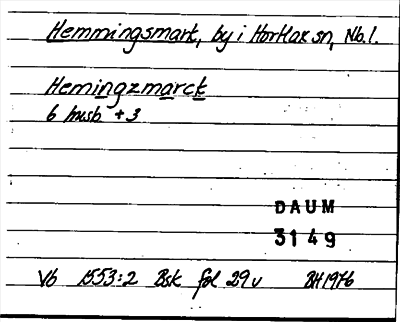 Hemmingsmark, by i Hortlax sn, Nb.l.
Hemingzmarck
6 husb + 3
DAUM
3149
Vb 1553:2 Bsk fol 29 v BH 1976